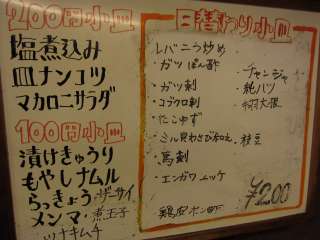 200円小皿
塩煮込み
皿ナンコツ
マカロニサラダ
100円小皿
漬けきゅうり
もやしナムル
らっきょう ザーサイ
メンマ・煮玉子
ツナキムチ
日替わり小皿
レバニラ炒め
・ガツポン酢
・ガツ刺
・コブクロ刺
・たこゆず
・馬刺
・エンガワユッケ
・チャンジャ
・純ハツ
・枝豆
¥200